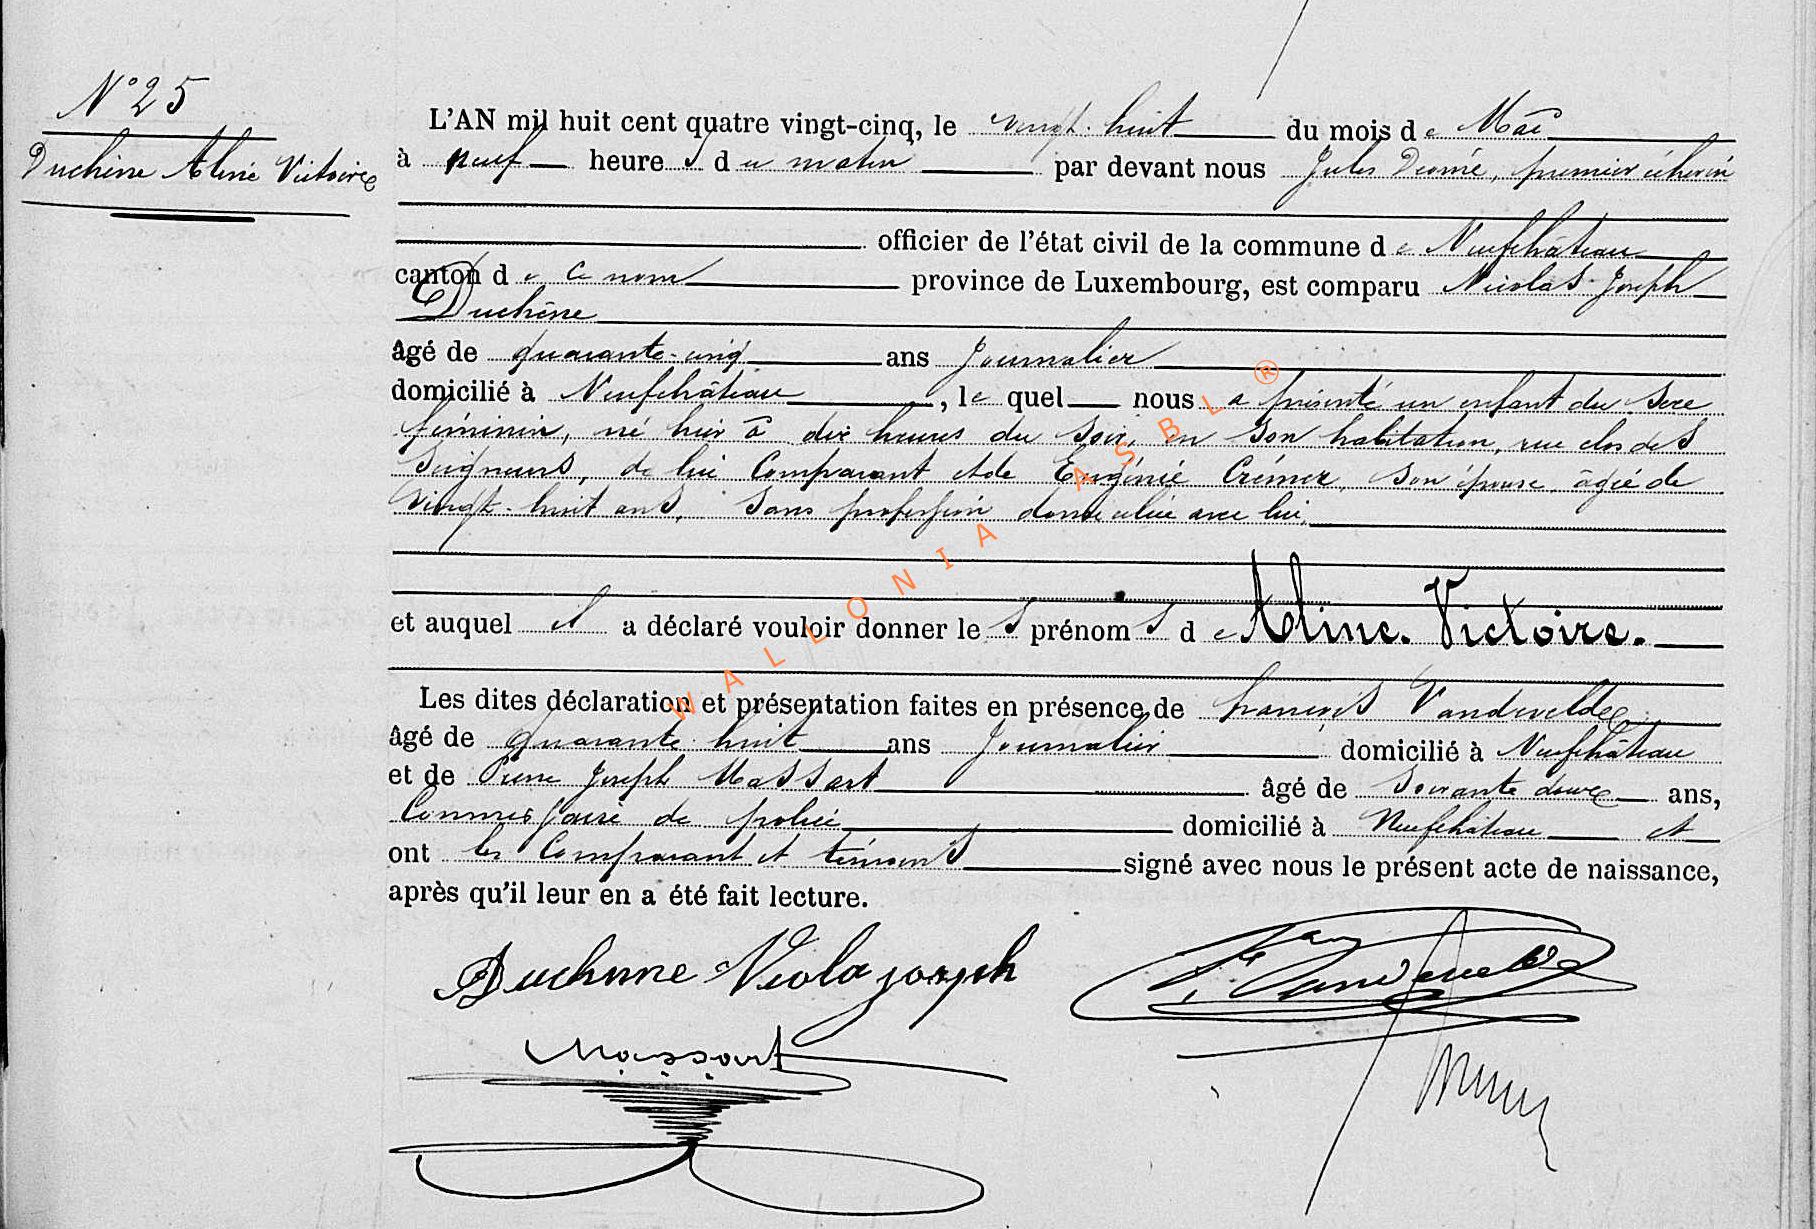 N° 25
Duchêne Aline Victoire
L'AN mil huit cent quatre vingt-cinq, le vingt-huit du mois de Mai
à neuf heures du matin par devant nous Jules premier échevin
officier de l'état civil de la commune de Neufchâteau
canton de ce nom province de Luxembourg, est comparu Nicolas-Joseph
Duchêne
âgé de quarante-cinq ans Journalier
domicilié à Neufchâteau, lequel nous a présenté un enfant du sexe
féminin, né hier à dix heures du soir, en son habitation, rue clos des
Seigneurs, de lui Comparant et de Eugénie Crémer, son épouse, âgée de
vingt-huit ans, sans profession domiciliée avec lui,
et auquel il a déclaré vouloir donner les prénoms de Aline. Victoire.
Les dites déclaration et présentation faites en présence de François Vandevelde
âgé de quarante-huit ans Journalier domicilié à Neufchâteau
et de Pierre Joseph Massart âgé de soixante douze ans,
Commissaire de police domicilié à Neufchâteau et
ont les Comparant et témoins signé avec nous le présent acte de naissance,
après qu'il leur en a été fait lecture.
Duchenne Nicola joseph
Massart
WALLONIA ASBL ®